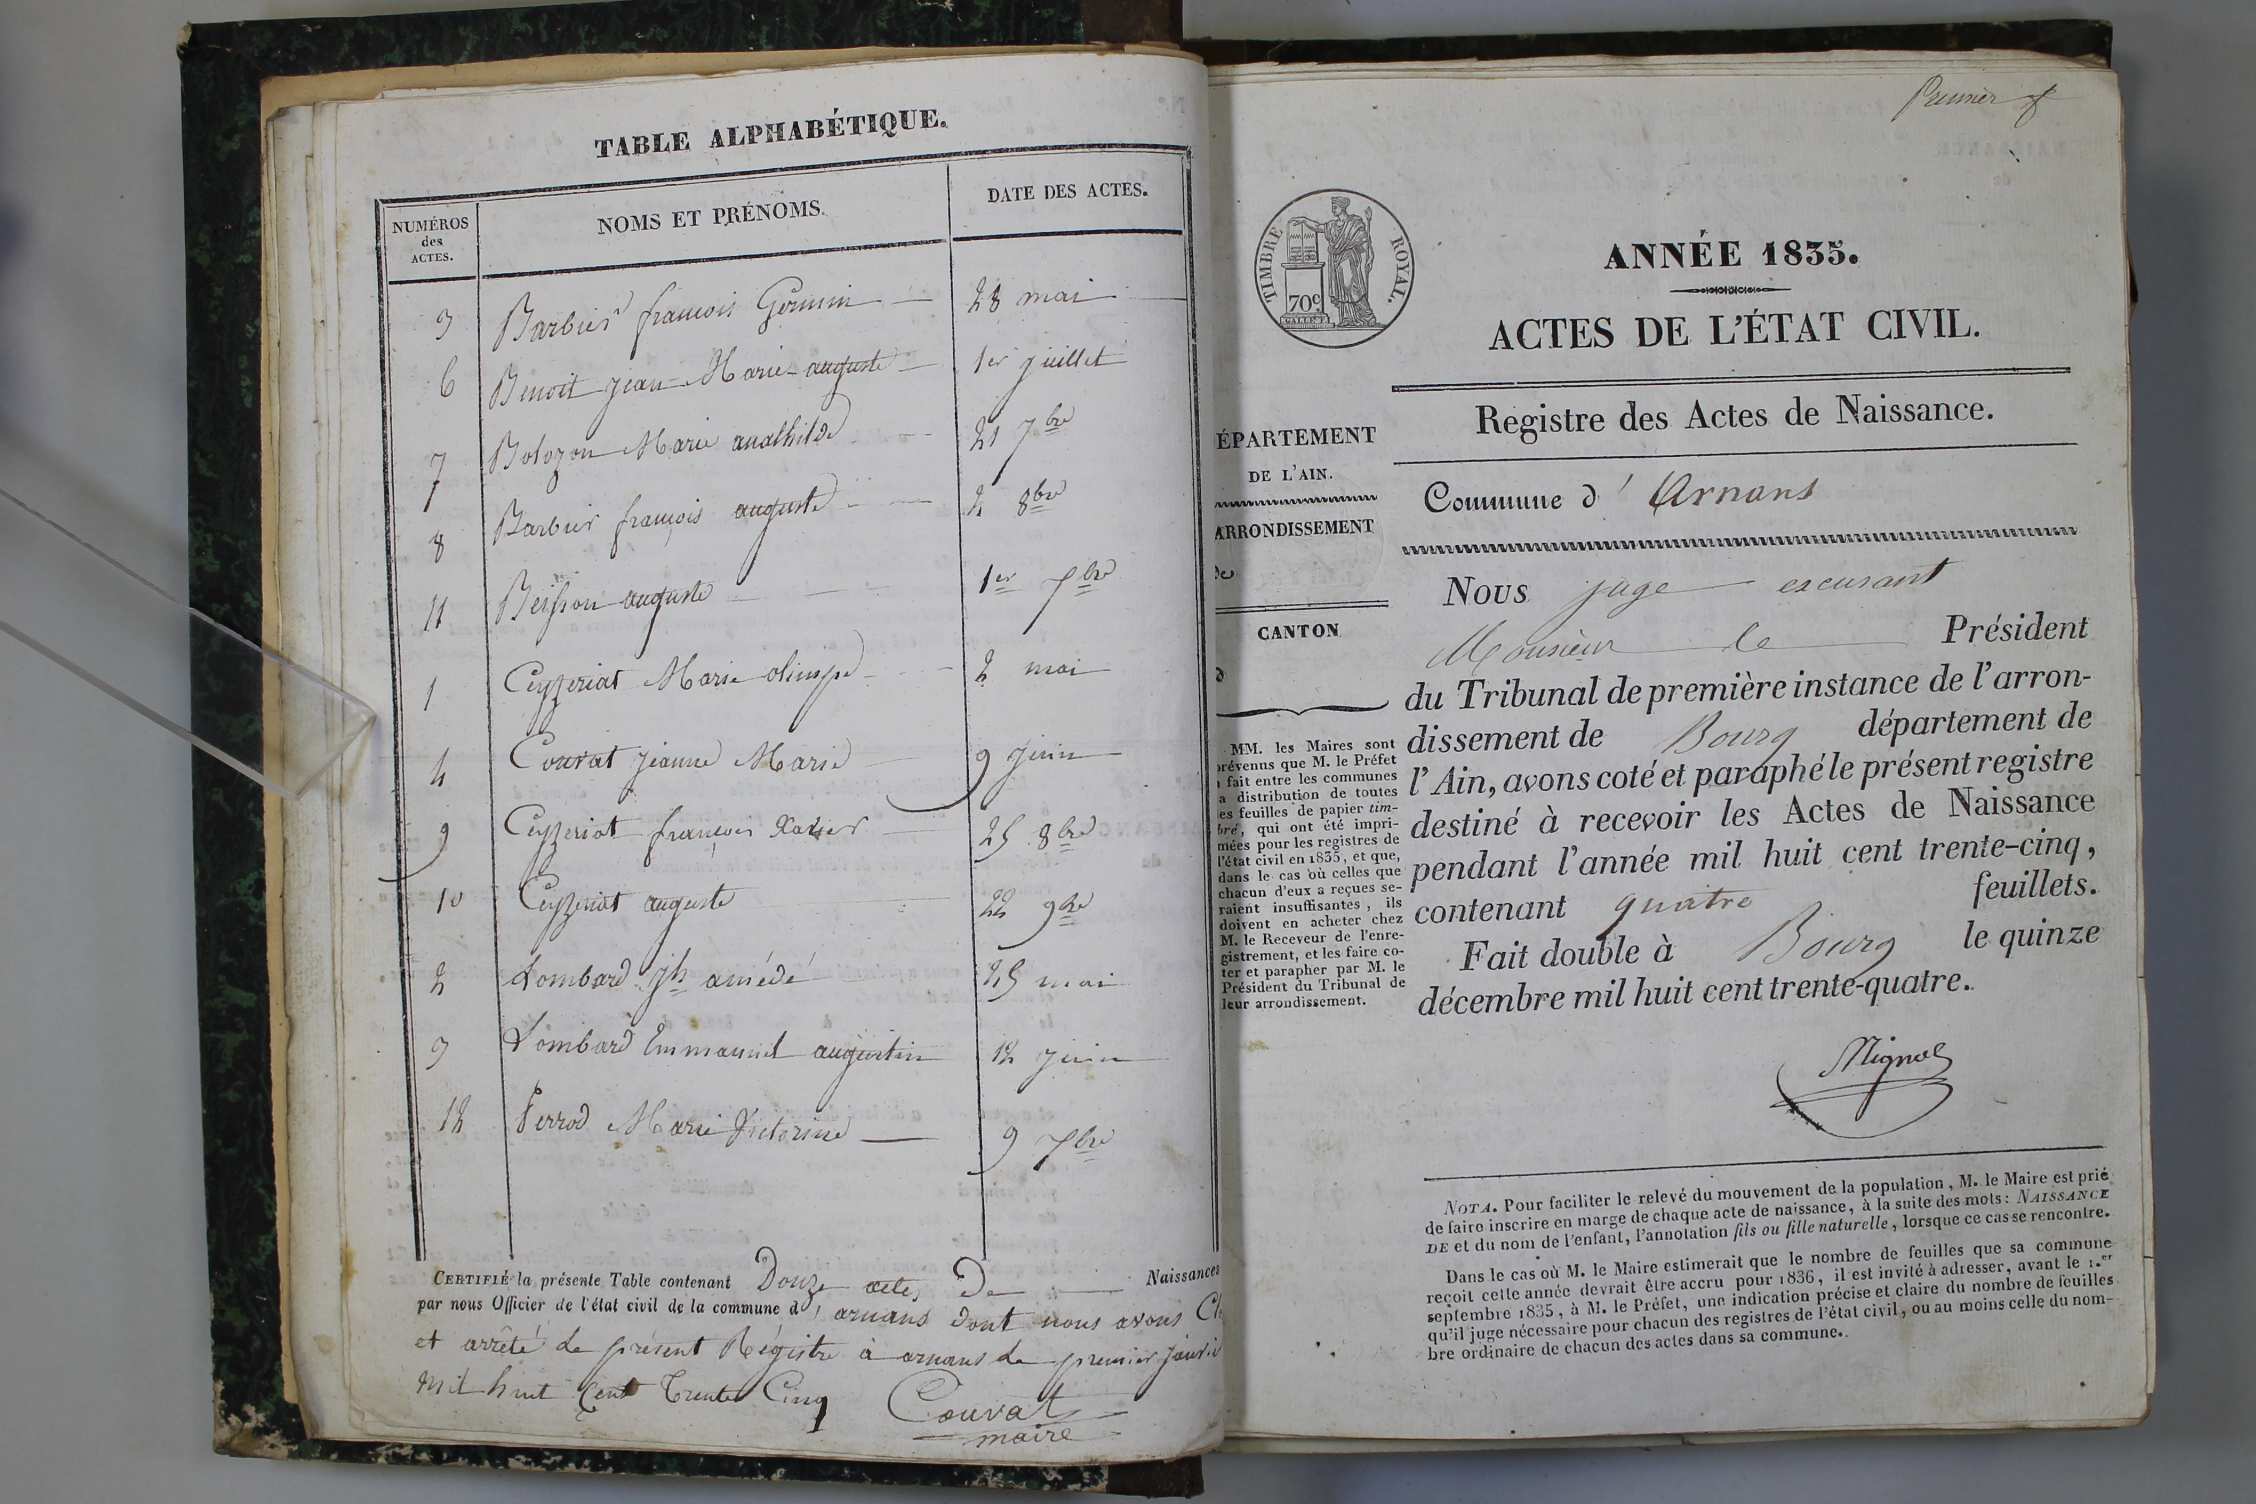 TABLE ALPHABÉTIQUE.
NUMÉROS des ACTES.
NOMS ET PRÉNOMS.
DATE DES ACTES.
3 Barbier françois Germin 28 mai
6 Benoit jean-Marie-auguste 1er juillet
7 Bolozon Marie anathilde 21 7bre
8 Barbier françois auguste 2 8bre
11 auguste 1er Xbre
1 Ceyzeriat Marie olimpe 2 mai
4 Couvat jeanne Marie 9 juin
9 Ceyzeriat françois Xavier 25 8bre
10 Ceyzeriat auguste 22 9bre
2 Lombard jh amédé 25 mai
Lombard Emmanuel augustin 12 juin
12 Perrod Marie Victorine 9 Xbre
CERTIFIÉ la présente Table contenant Douze actes De Naissances
par nous Officier de l'état civil de la commune d' arnans dont nous avons Cl
et arrêté le présent Régistre à arnans le premier janvie
mil huit Cent Trente Cinq Couvat
maire
Premier f
TIMBRE ROYAL.
70c
ANNÉE 1835.
ACTES DE L'ÉTAT CIVIL.
Registre des Actes de Naissance.
ÉPARTEMENT
DE L'AIN.
ARRONDISSEMENT
de
CANTON
d
MM. les Maires sont
prévenus que M. le Préfet
a fait entre les communes
la distribution de toutes
les feuilles de papier tim-
bré, qui ont été impri-
mées pour les registres de
l'état civil en 1835, et que,
dans le cas où celles que
chacun d'eux a reçues se-
raient insuffisantes, ils
doivent en acheter chez
M. le Receveur de l'enre-
gistrement, et les faire co-
ter et parapher par M. le
Président du Tribunal de
leur arrondissement.
Commune d' Arnans
Nous juge excusant
Monsieur le Président
du Tribunal de première instance de l'arron-
dissement de Bourg département de
l'Ain, avons coté et paraphé le présent registre
destiné à recevoir les Actes de Naissance
pendant l'année mil huit cent trente-cinq,
contenant quatre feuillets.
Fait double à Bourg le quinze
décembre mil huit cent trente-quatre.
NOTA. Pour faciliter le relevé du mouvement de la population, M. le Maire est prié
de faire inscrire en marge de chaque acte de naissance, à la suite des mots: NAISSANCE
DE et du nom de l'enfant, l'annotation fils ou fille naturelle, lorsque ce cas se rencontre.
Dans le cas où M. le Maire estimerait que le nombre de feuilles que sa commune
reçoit cette année devrait être accru pour 1836, il est invité à adresser, avant le 1.er
septembre 1835, à M. le Préfet, une indication précise et claire du nombre de feuilles
qu'il juge nécessaire pour chacun des registres de l'état civil, ou au moins celle du nom-
bre ordinaire de chacun des actes dans sa commune.